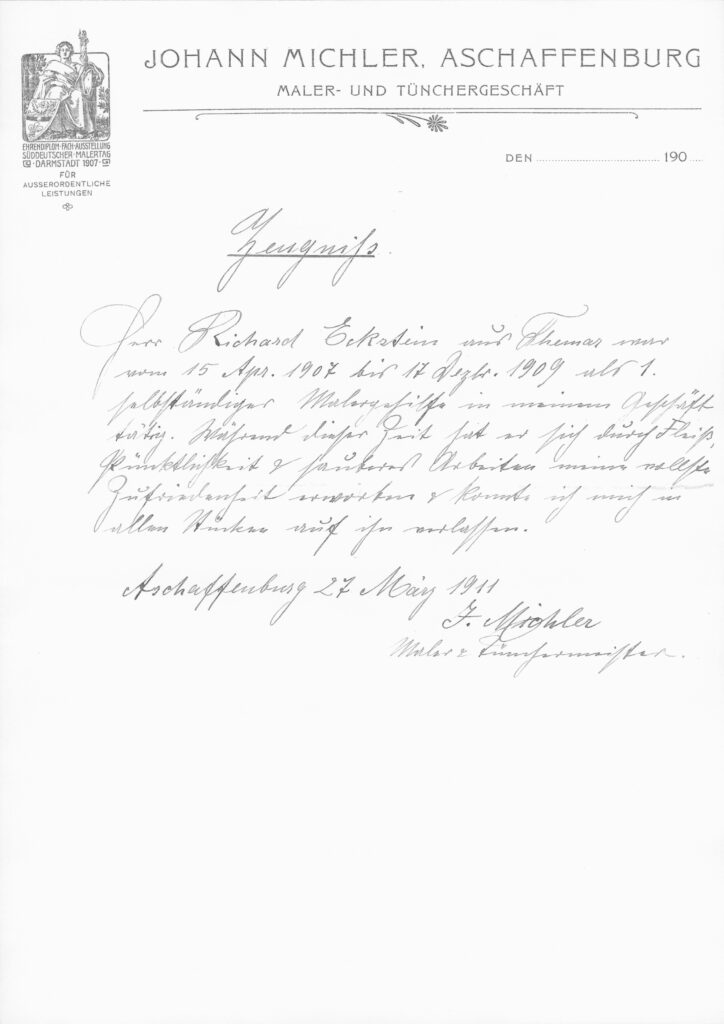 JOHANN MICHLER, ASCHAFFENBURG
MALER- UND TÜNCHERGESCHÄFT
EHRENDIPLOM-FACH-AUSSTELLUNG
SÜDDEUTSCHER-MALERTAG
DARMSTADT 1907
FÜR
AUSSERORDENTLICHE
LEISTUNGEN
DEN 190
Zeugniß.
Herr Richard Eckstein aus Themar war
vom 15 Apr. 1907 bis 17 Dezbr. 1909 als 1.
selbständiger Malergehilfe in meinem Geschäft
tätig. Während dieser Zeit hat er sich durch Fleiß,
Pünktlichkeit & sauberes Arbeiten meine vollste
Zufriedenheit erworben & konnte ich mich in
allen Stücken auf ihn verlassen.
Aschaffenburg 27 März 1911
J. Michler
Maler & Tünchermeister.